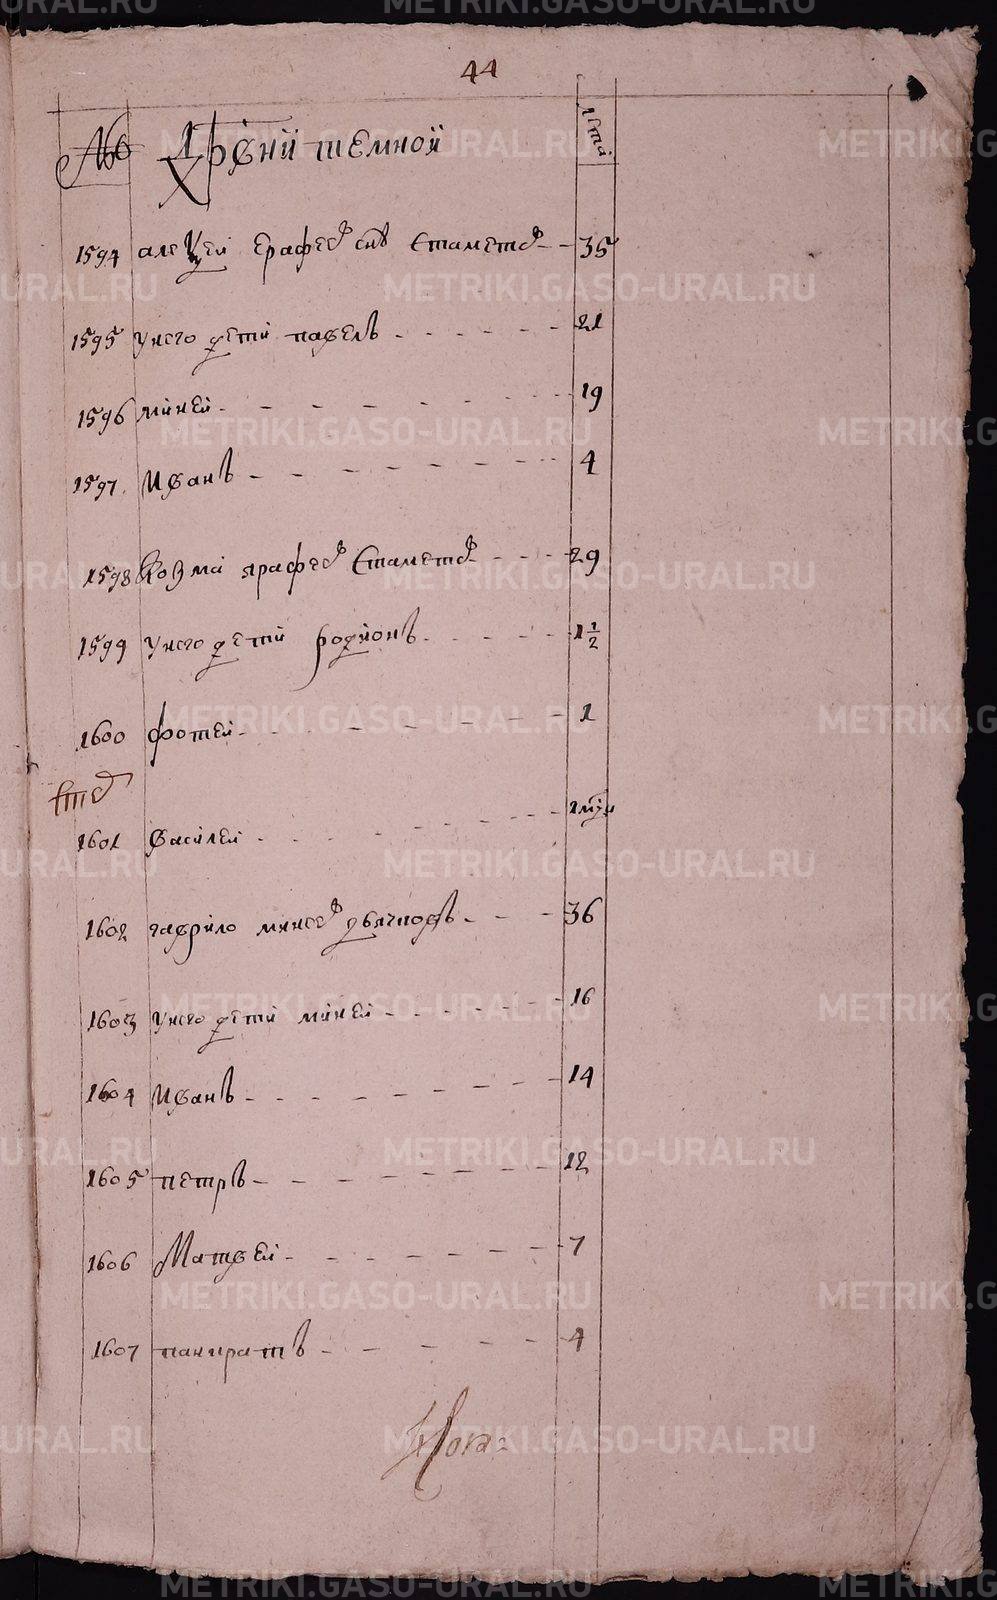 44
№ Древни темной лета
1594 алеѯей ерафеев снъ Стаметев 35
1595 у него дети павелъ 21
1596 миней 19
1597 Иванъ 4
1598 Козма ярафеев Стаметев 29
1599 у него дети родионъ 1 1/2
1600 фотей 1
1601 Василей 1
1602 гаврило минеев 36
1603 у него дети миней 16
1604 Иванъ 14
1605 петръ 12
1606 Матвей 7
1607 панкратъ 4
METRIKI.GASO-URAL.RU